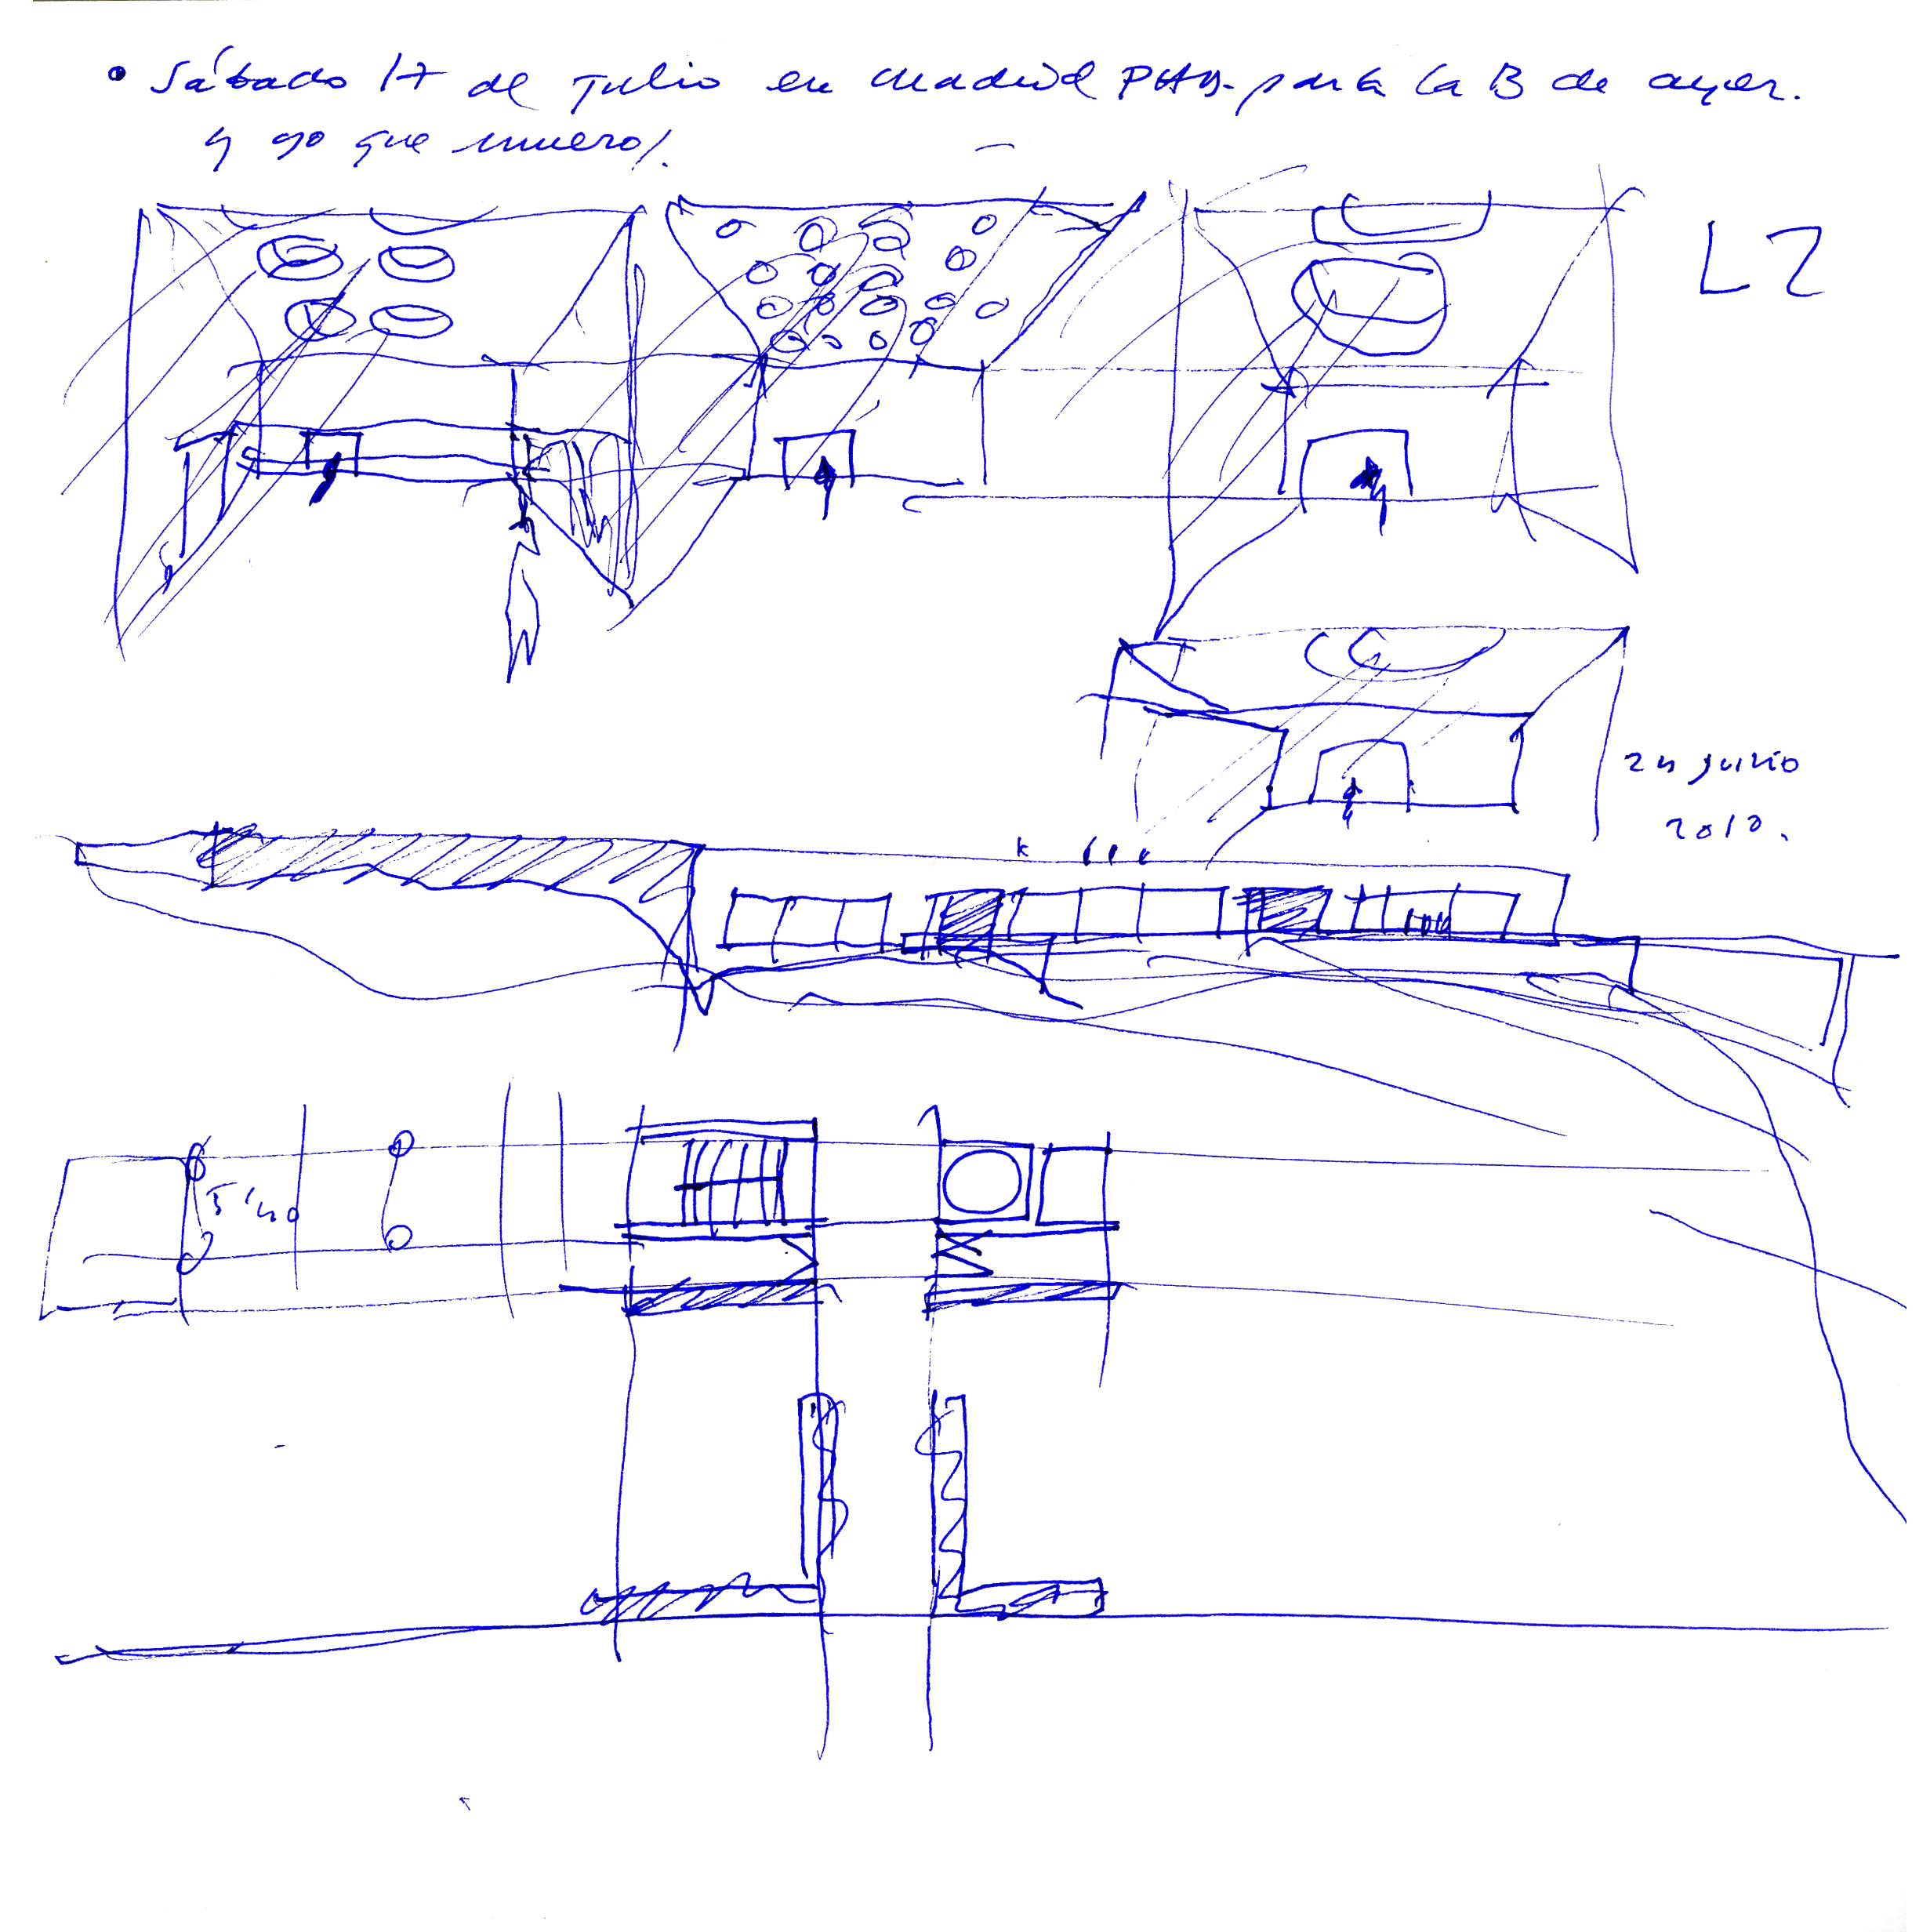 • Sábado 17 de Julio en Madrid para la B de ayer.
y yo que muero!.
LZ
24 Julio
2010.
5'40